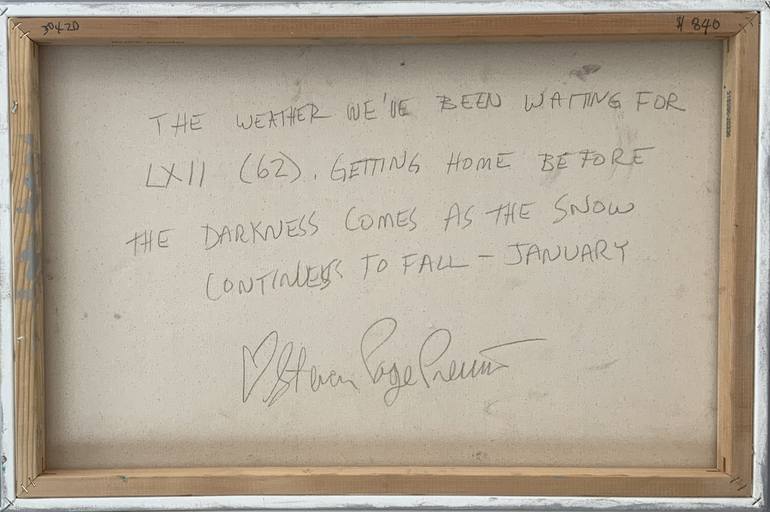 30x20
$ 840
THE WEATHER WE'VE BEEN WAITING FOR
LXII (62). GETTING HOME BEFORE
THE DARKNESS COMES AS THE SNOW
CONTINUES TO FALL - JANUARY
♡ Steven Page Prewitt